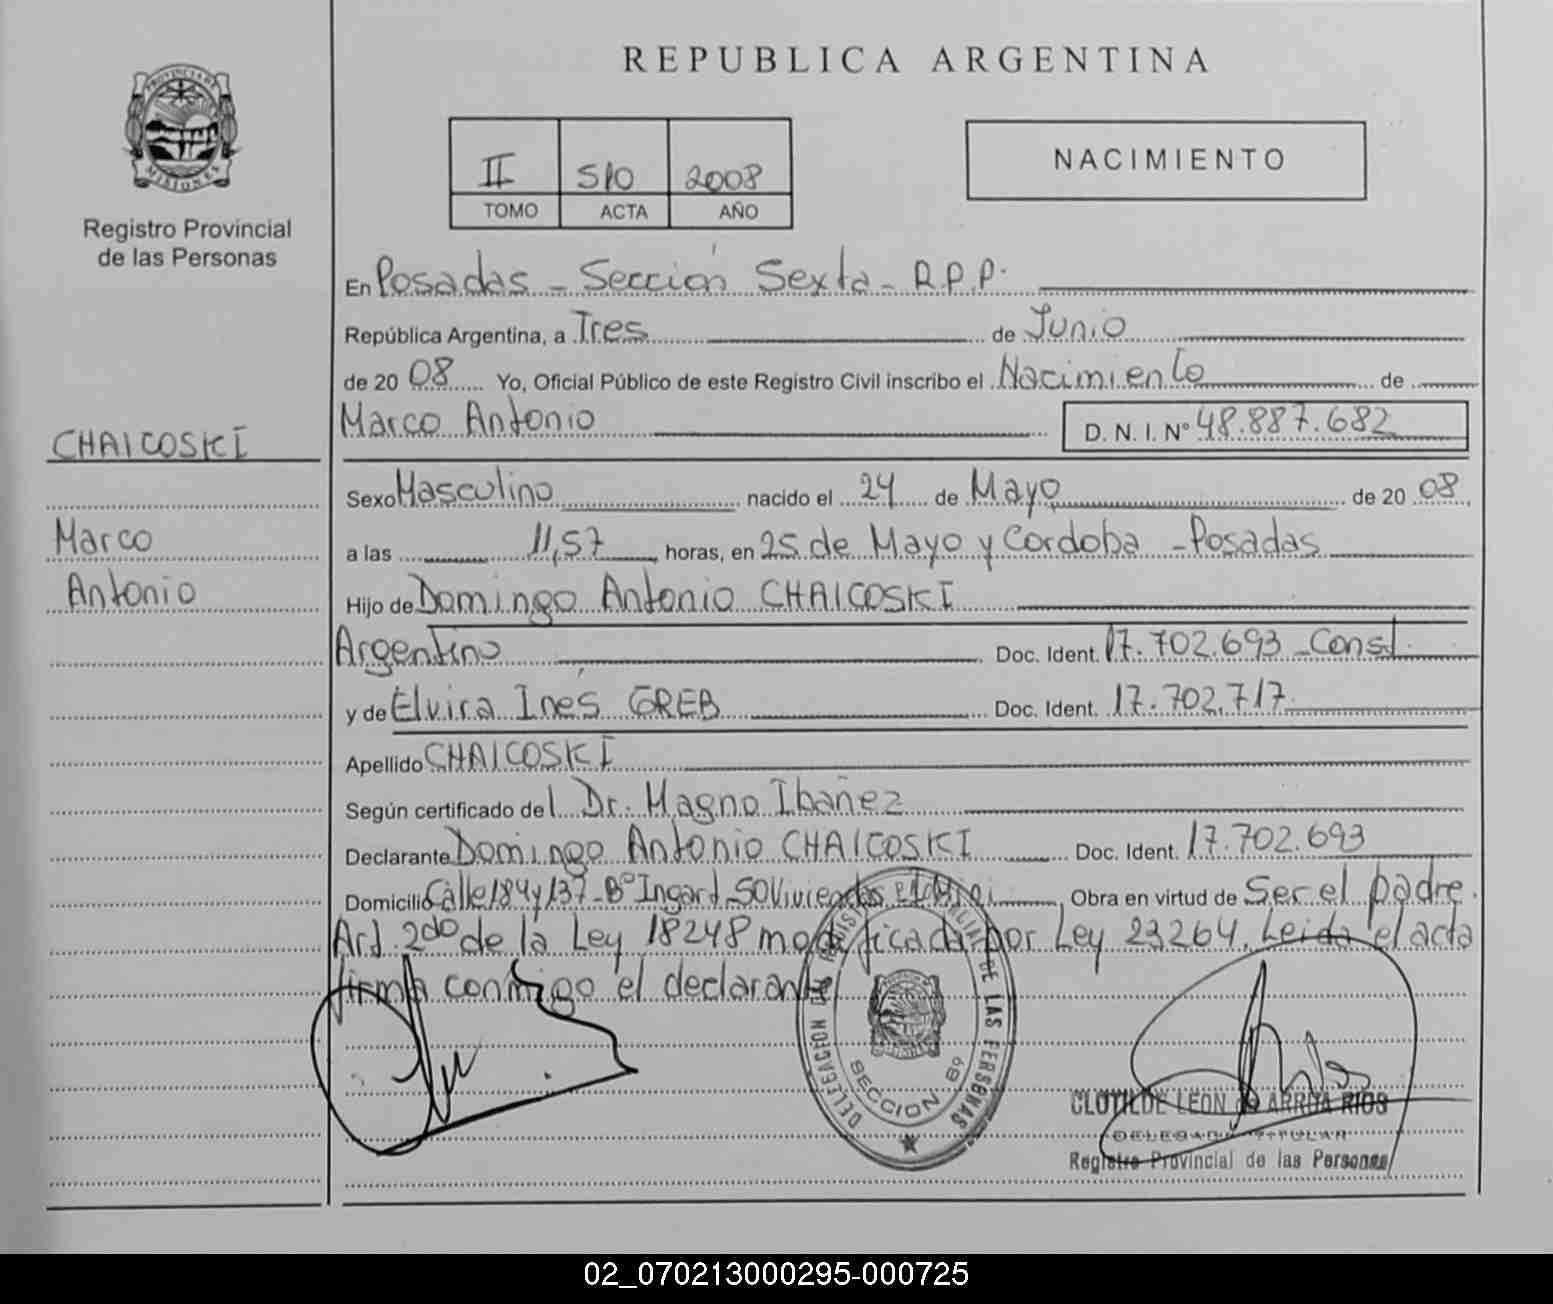 REPUBLICA ARGENTINA
PROVINCIA DE
MISIONES
Registro Provincial
de las Personas
II 510 2008
TOMO ACTA AÑO
NACIMIENTO
En Posadas - Sección Sexta - R.P.P.
República Argentina, a Tres de Junio
de 20 08 Yo, Oficial Público de este Registro Civil inscribo el Nacimiento de
Marco Antonio D. N. I. Nº 48.887.682
CHAICOSKI
Marco
Antonio
Sexo Masculino nacido el 24 de Mayo de 20 08
a las 11,57 horas, en 25 de Mayo y Córdoba - Posadas
Hijo de Domingo Antonio CHAICOSKI
Argentino Doc. Ident. 17.702.693 - Const.
y de Elvira Inés GREB Doc. Ident. 17.702.717.
Apellido CHAICOSKI
Según certificado del Dr. Magno Ibañez
Declarante Domingo Antonio CHAICOSKI Doc. Ident. 17.702.693
Domicilio Calle 184 y 137 - Bº Ingard - 50 Viviendas Obra en virtud de Ser el padre.
Art. 2do de la Ley 18248 modificada por Ley 23264. Leida el acta
firma conmigo el declarante
DELEGACION DEL REGISTRO PROVINCIAL DE LAS PERSONAS
SECCION 6º
CLOTILDE LEON de ARRUA RIOS
DELEGADA TITULAR
Registro Provincial de las Personas
02_070213000295-000725